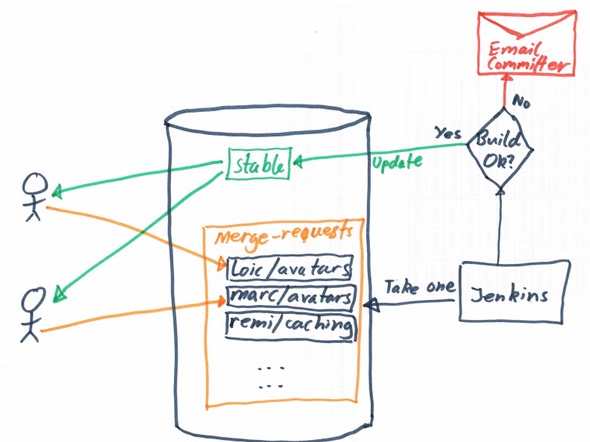 Email
Committer
No
Yes
Build
Ok?
Stable
Update
Merge-requests
loic/avatars
marc/avatars
remi/caching
...
...
Take one
Jenkins